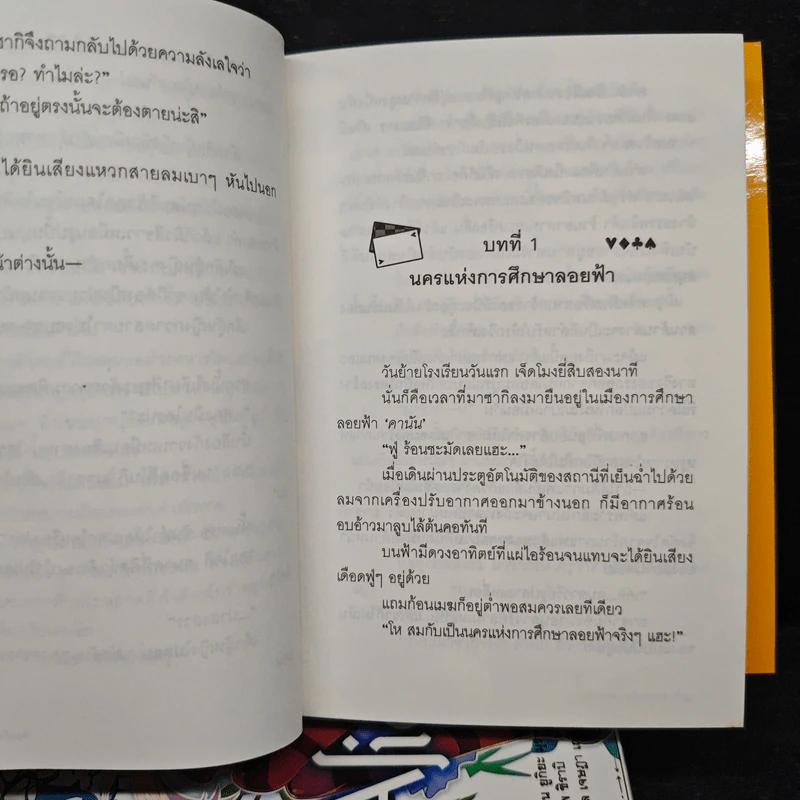 ซากิจึงถามกลับไปด้วยความลังเลใจว่า
รอ? ทำไมล่ะ?”
ถ้าอยู่ตรงนั้นจะต้องตายน่ะสิ”
ได้ยินเสียงแหวกสายลมเบาๆ หันไปนอก
น้าต่างนั้น—
บทที่ 1 ♥♦♣♠
นครแห่งการศึกษาลอยฟ้า
วันย้ายโรงเรียนวันแรก เจ็ดโมงยี่สิบสองนาที
นั่นก็คือเวลาที่มาซากิลงมายืนอยู่ในเมืองการศึกษา
ลอยฟ้า ‘คานัน’
“ฟู่ ร้อนชะมัดเลยแฮะ...”
เมื่อเดินผ่านประตูอัตโนมัติของสถานีที่เย็นฉ่ำไปด้วย
ลมจากเครื่องปรับอากาศออกมาข้างนอก ก็มีอากาศร้อน
อบอ้าวมาลูบไล้ต้นคอทันที
บนฟ้ามีดวงอาทิตย์ที่แผ่ไอร้อนจนแทบจะได้ยินเสียง
เดือดฟู่ๆ อยู่ด้วย
แถมก้อนเมฆก็อยู่ต่ำพอสมควรเลยทีเดียว
“โห สมกับเป็นนครแห่งการศึกษาลอยฟ้าจริงๆ แฮะ!”